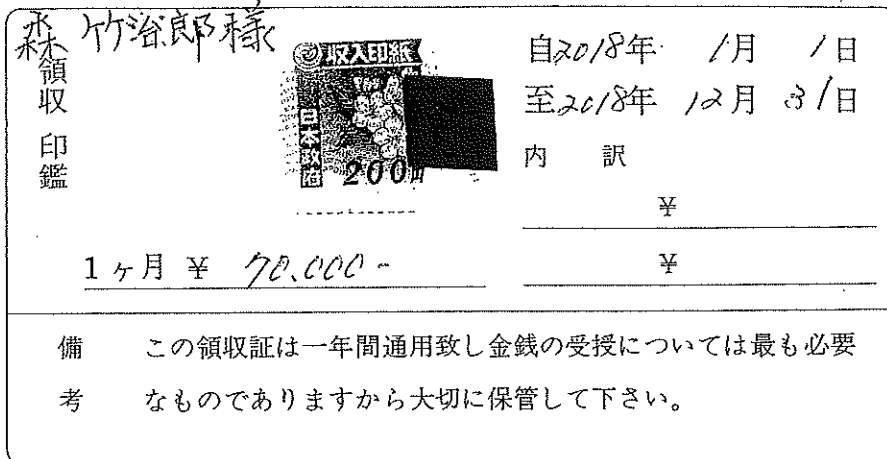 森 竹治郎様
領収印鑑
収入印紙
日本政府
200
自2018年 1月 1日
至2018年 12月 31日
内 訳
¥
1ヶ月 ¥ 70.000-
¥
備考
この領収証は一年間通用致し金銭の受授については最も必要
なものでありますから大切に保管して下さい。